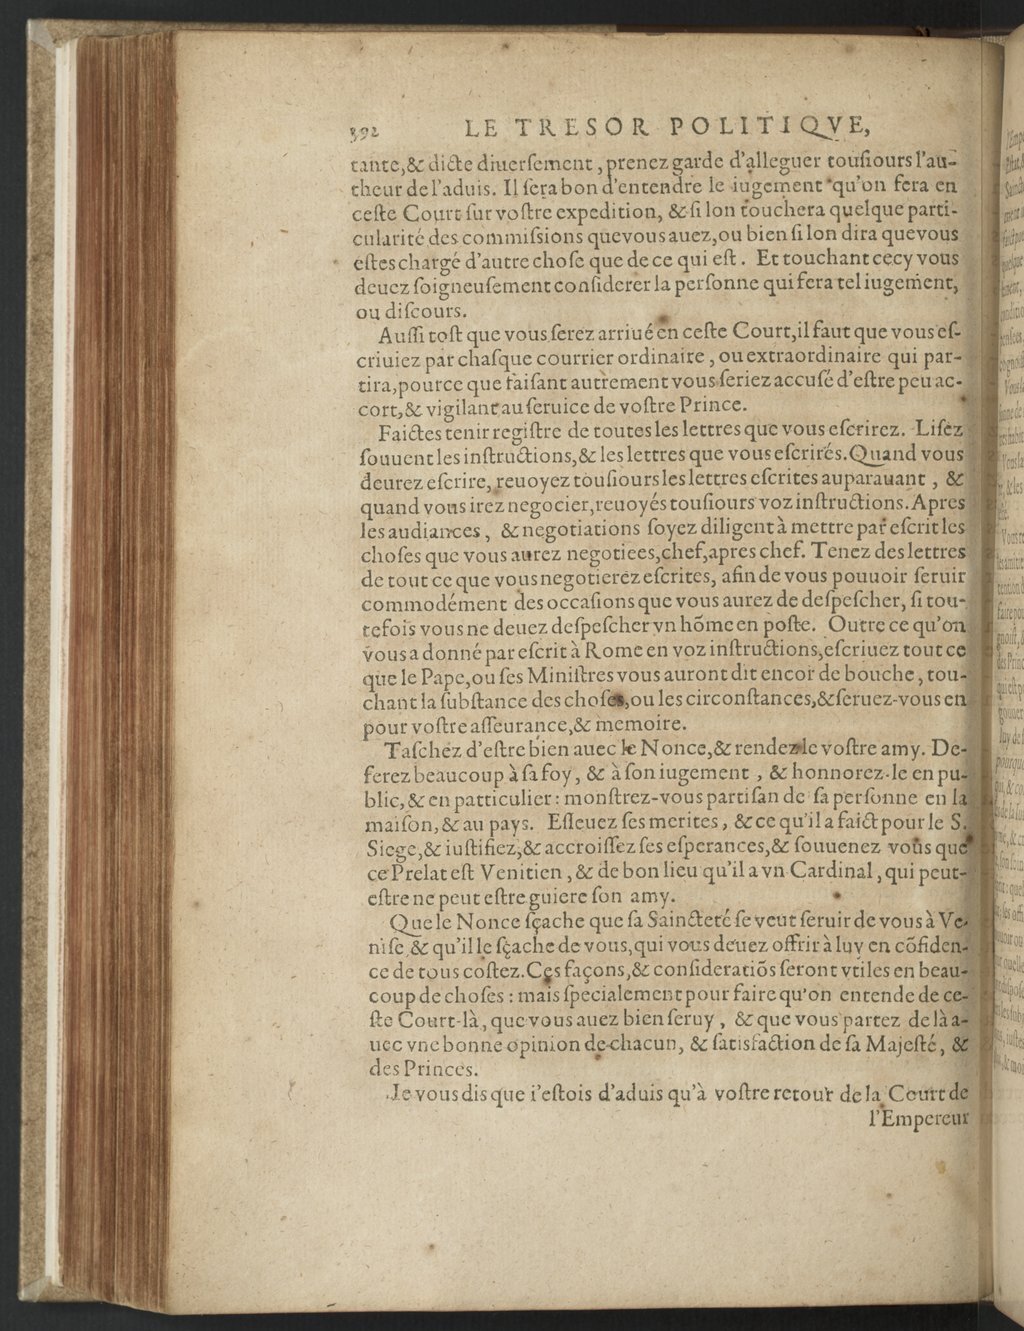 392 LE TRESOR POLITIQVE,
tante,& dicte diuerſement, prenez garde d'alleguer touſiours l'au-
theur de l'aduis. Il ſera bon d'entendre le iugement qu'on fera en
ceſte Court ſur voſtre expedition, & ſi lon touchera quelque parti-
cularité des commiſsions que vous auez,ou bien ſi lon dira que vous
eſtes chargé d'autre choſe que de ce qui eſt. Et touchant cecy vous
deuez ſoigneuſement conſiderer la perſonne qui fera tel iugement,
ou diſcours.
Auſſi toſt que vous ſerez arriué en ceſte Court,il faut que vous eſ-
criuiez par chaſque courrier ordinaire, ou extraordinaire qui par-
tira,pource que faiſant autrement vous ſeriez accuſé d'eſtre peu ac-
cort,& vigilant au ſeruice de voſtre Prince.
Faictes tenir regiſtre de toutes les lettres que vous eſcrirez. Liſez
ſouuent les inſtructions,& les lettres que vous eſcrirés. Quand vous
deurez eſcrire, reuoyez touſiours les lettres eſcrites auparauant, &
quand vous irez negocier,reuoyés touſiours voz inſtructions. Apres
les audiances, & negotiations ſoyez diligent à mettre par eſcrit les
choſes que vous aurez negotiees,chef,apres chef. Tenez des lettres
de tout ce que vous negotierez eſcrites, afin de vous pouuoir ſeruir
commodément des occaſions que vous aurez de deſpeſcher, ſi tou-
tefois vous ne deuez deſpeſcher vn hõme en poſte. Outre ce qu'on
vous a donné par eſcrit à Rome en voz inſtructions,eſcriuez tout ce
que le Pape,ou ſes Miniſtres vous auront dit encor de bouche, tou-
chant la ſubſtance des choſes,ou les circonſtances,& ſeruez-vous en
pour voſtre aſſeurance,& memoire.
Taſchez d'eſtre bien auec le Nonce,& rendez le voſtre amy. De-
ferez beaucoup à ſa foy, & à ſon iugement, & honnorez-le en pu-
blic,& en patticulier: monſtrez-vous partiſan de ſa perſonne en la
maiſon,& au pays. Eſleuez ſes merites, & ce qu'il a faict pour le S.
Siege,& iuſtifiez,& accroiſſez ſes eſperances,& ſouuenez vous que
ce Prelat eſt Venitien, & de bon lieu qu'il a vn Cardinal, qui peut-
eſtre ne peut eſtre guiere ſon amy.
Que le Nonce ſçache que ſa Saincteté ſe veut ſeruir de vous à Ve-
niſe,& qu'il le ſçache de vous,qui vous deuez offrir à luy en cõfiden-
ce de tous coſtez. Ces façons,& conſideratiõs ſeront vtiles en beau-
coup de choſes: mais ſpecialement pour faire qu'on entende de ce-
ſte Court-là, que vous auez bien ſeruy, & que vous partez de là a-
uec vne bonne opinion de chacun, & ſatisfaction de ſa Majeſté, &
des Princes.
Je vous dis que i'eſtois d'aduis qu'à voſtre retour de la Court de
l'Empereur